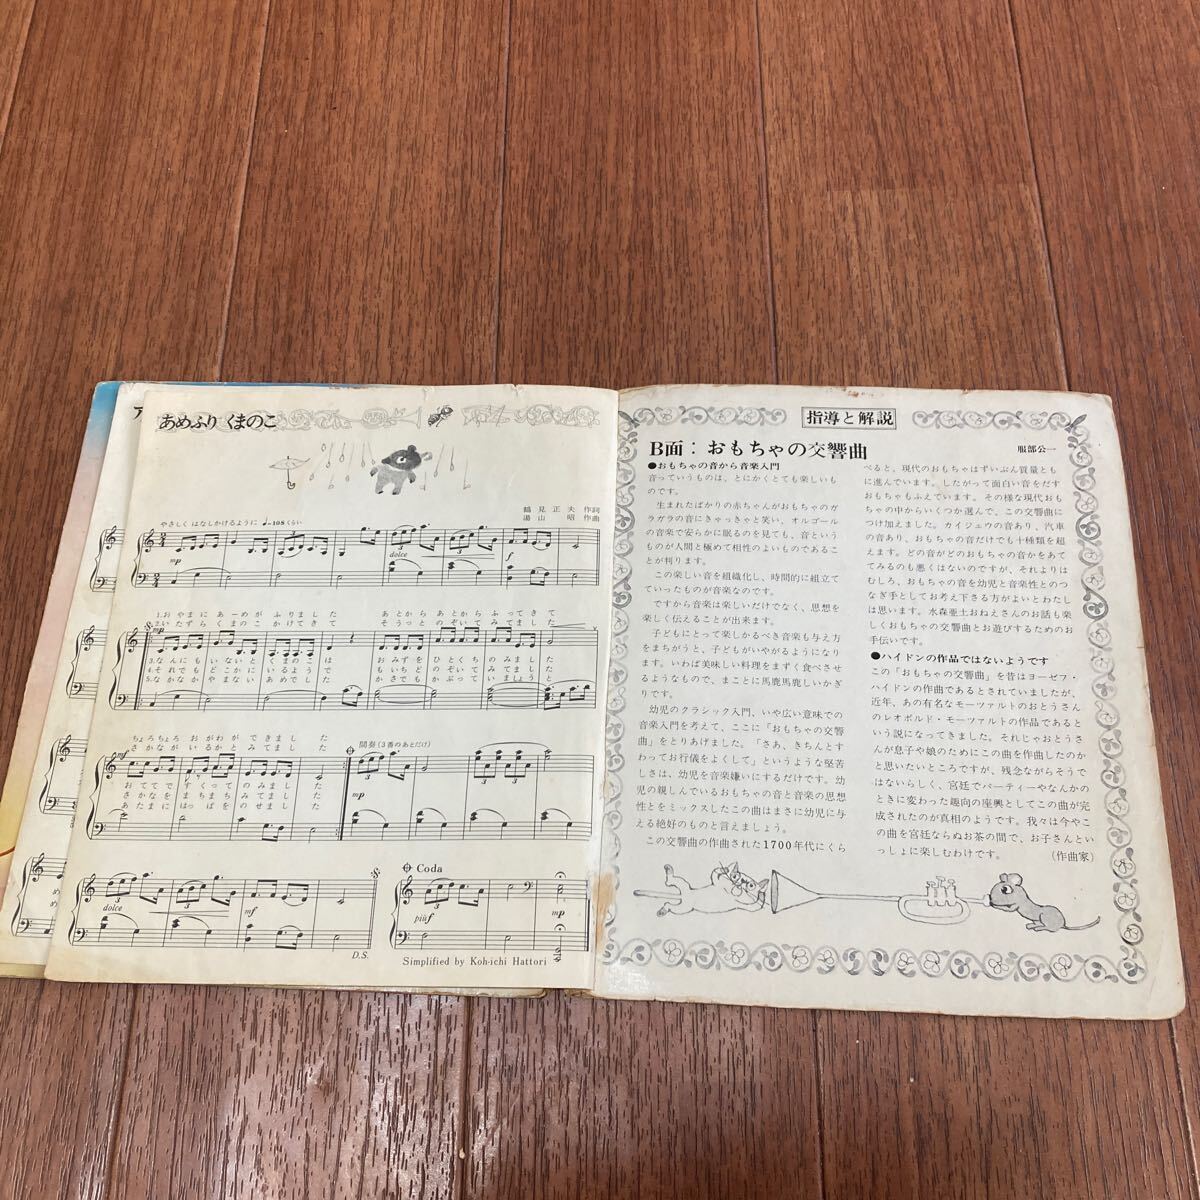 あめふり くまのこ
鶴見正夫 作詞
湯山 昭 作曲
やさしく はなしかけるように ♩=108くらい
mp
dolce
f
1.おやまに あーめが ふりました あとから あとから ふってきて
2.いたずら くまのこ かけてきて そうっと のぞいて みてました
mp
3.なんにも いないと くまのこは おみずを ひとくち のみました
4.それでも どこかに いるようで もいちど のぞいて みてました
5.なかなか やまない あめでした かさでも かぶって いましょうと
ちょろちょろ おがわが できました
さかなが いるかと みてました
mf
間奏(3番のあとだけ)
おててで すくって のみました
さかなを まちまち みてました
あたまに はっぱを のせました
mp
mp
dolce
mf
D.S.
Coda
più f
mp
Simplified by Koh-ichi Hattori
指導と解説
B面：おもちゃの交響曲
服部公一
●おもちゃの音から音楽入門
音っていうものは、とにかくとても楽しいも
のです。
生まれたばかりの赤ちゃんがおもちゃのガ
ラガラの音にきゃっきゃと笑い、オルゴール
の音楽で安らかに眠るのを見ても、音という
ものが人間と極めて相性のよいものであるこ
とが判ります。
この楽しい音を組織化し、時間的に組立て
ていったものが音楽なのです。
ですから音楽は楽しいだけでなく、思想を
楽しく伝えることが出来ます。
子どもにとって楽しかるべき音楽も与え方
をまちがうと、子どもがいやがるようになり
ます。いわば美味しい料理をまずく食べさせ
るようなもので、まことに馬鹿馬鹿しいかぎ
りです。
幼児のクラシック入門、いや広い意味での
音楽入門を考えて、ここに「おもちゃの交響
曲」をとりあげました。「さあ、きちんとす
わってお行儀をよくして」というような堅苦
しさは、幼児を音楽嫌いにするだけです。幼
児の親しんでいるおもちゃの音と音楽の思想
性とをミックスしたこの曲はまさに幼児に与
える絶好のものと言えましょう。
この交響曲の作曲された1700年代にくら
べると、現代のおもちゃはずいぶん質量とも
に進んでいます。したがって面白い音をだす
おもちゃもふえています。その様な現代おも
ちゃの中からいくつか選んで、この交響曲に
つけ加えました。カイジュウの音あり、汽車
の音あり、おもちゃの音だけでも十種類を超
えます。どの音がどのおもちゃの音かをあて
てみるのも悪くはないのですが、それよりは
むしろ、おもちゃの音を幼児と音楽性とのつ
なぎ手としてお考え下さる方がよいとわたし
は思います。水森亜土おねえさんのお話も楽
しくおもちゃの交響曲とお遊びするためのお
手伝いです。
●ハイドンの作品ではないようです
この「おもちゃの交響曲」を昔はヨーゼフ・
ハイドンの作曲であるとされていましたが、
近年、あの有名なモーツァルトのおとうさん
のレオポルド・モーツァルトの作品であると
いう説になってきました。それじゃおとうさ
んが息子や娘のためにこの曲を作曲したのか
と思いたいところですが、残念ながらそうで
はないらしく、宮廷でパーティーやなんかの
ときに変わった趣向の座興としてこの曲が完
成されたのが真相のようです。我々は今やこ
の曲を宮廷ならぬお茶の間で、お子さんとい
っしょに楽しむわけです。
(作曲家)